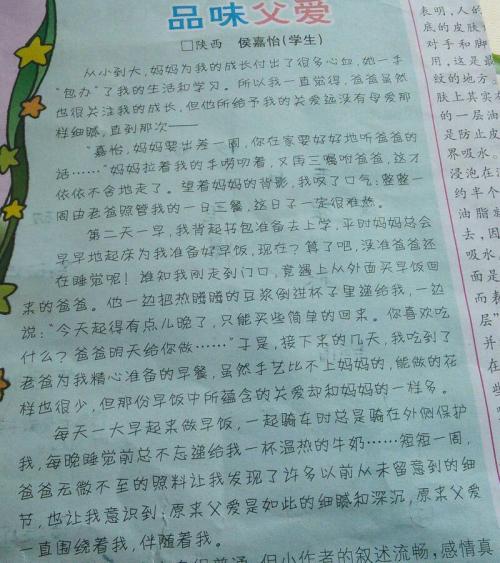 品味父爱
□陕西 侯嘉怡(学生)
从小到大,妈妈为我的成长付出了很多心血,她一手
“包办”了我的生活和学习。所以我一直觉得,爸爸虽然
也很关注我的成长,但他所给予我的关爱远没有母爱那
样细腻,直到那次——
“嘉怡,妈妈要出差一周,你在家要好好地听爸爸的
话……”妈妈拉着我的手唠叨着,又再三嘱咐爸爸,这才
依依不舍地走了。望着妈妈的背影,我叹了口气:整整一
周由老爸照管我的一日三餐,这日子一定很难熬。
第二天一早,我背起书包准备去上学,平时妈妈总会
早早地起床为我准备好早饭,现在?算了吧,没准爸爸还
在睡觉呢!谁知我刚走到门口,竟遇上从外面买早饭回
来的爸爸。他一边把热腾腾的豆浆倒进杯子里递给我,一边
说:“今天起得有点儿晚了,只能买些简单的回来。你喜欢吃
什么?爸爸明天给你做……”于是,接下来的几天,我吃到了
老爸为我精心准备的早餐,虽然手艺比不上妈妈的,能做的花
样也很少,但那份早饭中所蕴含的关爱却和妈妈的一样多。
每天一大早起来做早饭,一起骑车时总是骑在外侧保护
我,每晚睡觉前总不忘递给我一杯温热的牛奶……短短一周,
爸爸无微不至的照料让我发现了许多以前从未留意到的细
节,也让我意识到:原来父爱是如此的细腻和深沉,原来父爱
一直围绕着我,伴随着我。
但小作者的叙述流畅,感情真
表明,人的
底的皮肤
对手和脚
用,这是最
纹的地方。
肤上其实
的一层油
是防止皮
界吸水。
浸泡在
约半个
油脂
去,因
吸水,
面是
而表
层”
并
在
些